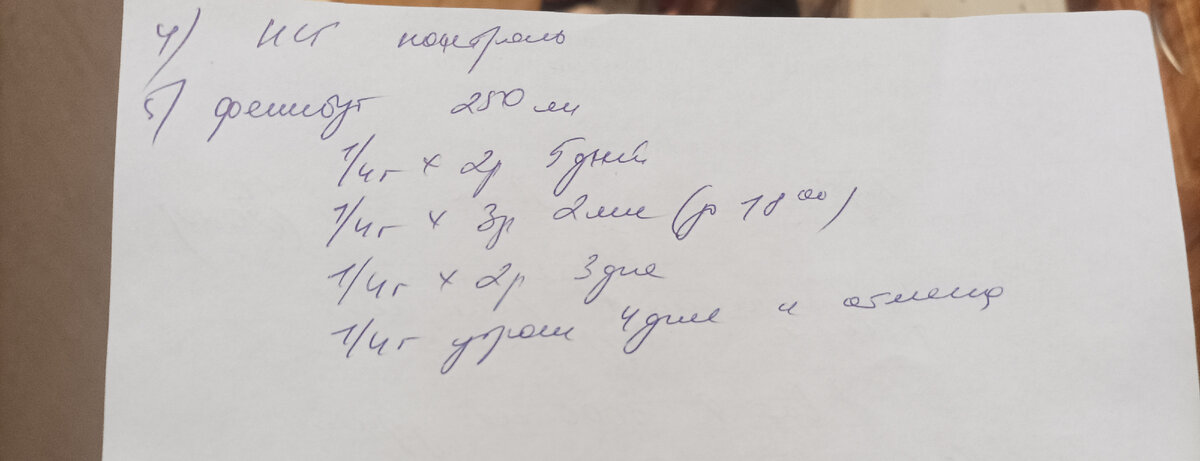 4) НСГ контроль
5) фенибут 250 мг
1/4т × 2р 5 дней
1/4т × 3р 2 мес (до 18⁰⁰)
1/4т × 2р 3 дня
1/4т утром 4 дня и отмена